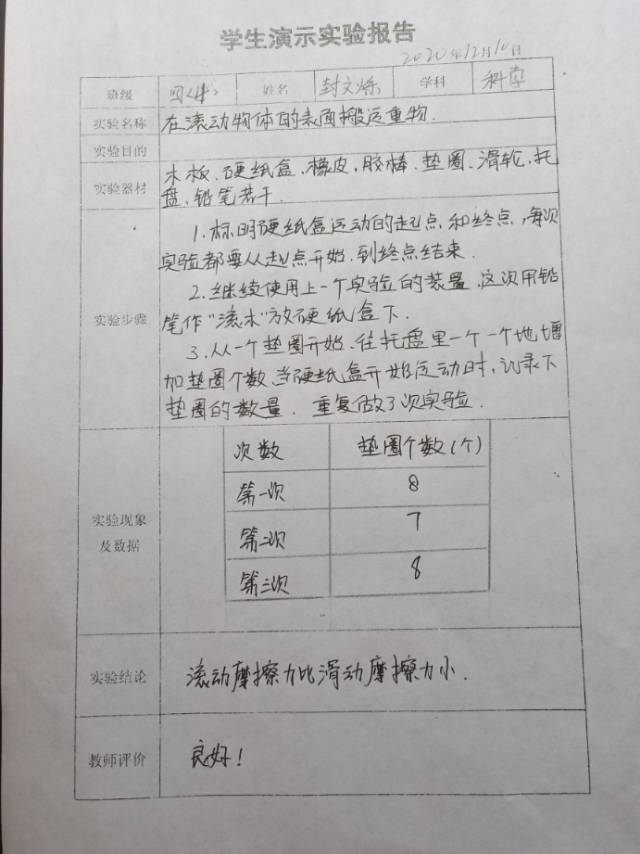 学生演示实验报告
2020年12月10日
班级 四(4) 姓名 封文烁 学科 科学
实验名称 在滚动物体的表面搬运重物.
实验目的
实验器材 木板、硬纸盒、橡皮,胶棒、垫圈、滑轮,托
盘、铅笔若干.
1.标明硬纸盒运动的起点和终点,每次
实验都要从起点开始,到终点结束.
2.继续使用上一个实验的装置,这次用铅
实验步骤 笔作“滚木”放硬纸盒下.
3.从一个垫圈开始,往托盘里一个一个地增
加垫圈个数,当硬纸盒开始运动时,记录下
垫圈的数量. 重复做3次实验.
实验现象
及数据
次数 垫圈个数(个)
第一次 8
第二次 7
第三次 8
实验结论 滚动摩擦力比滑动摩擦力小.
教师评价 良好!